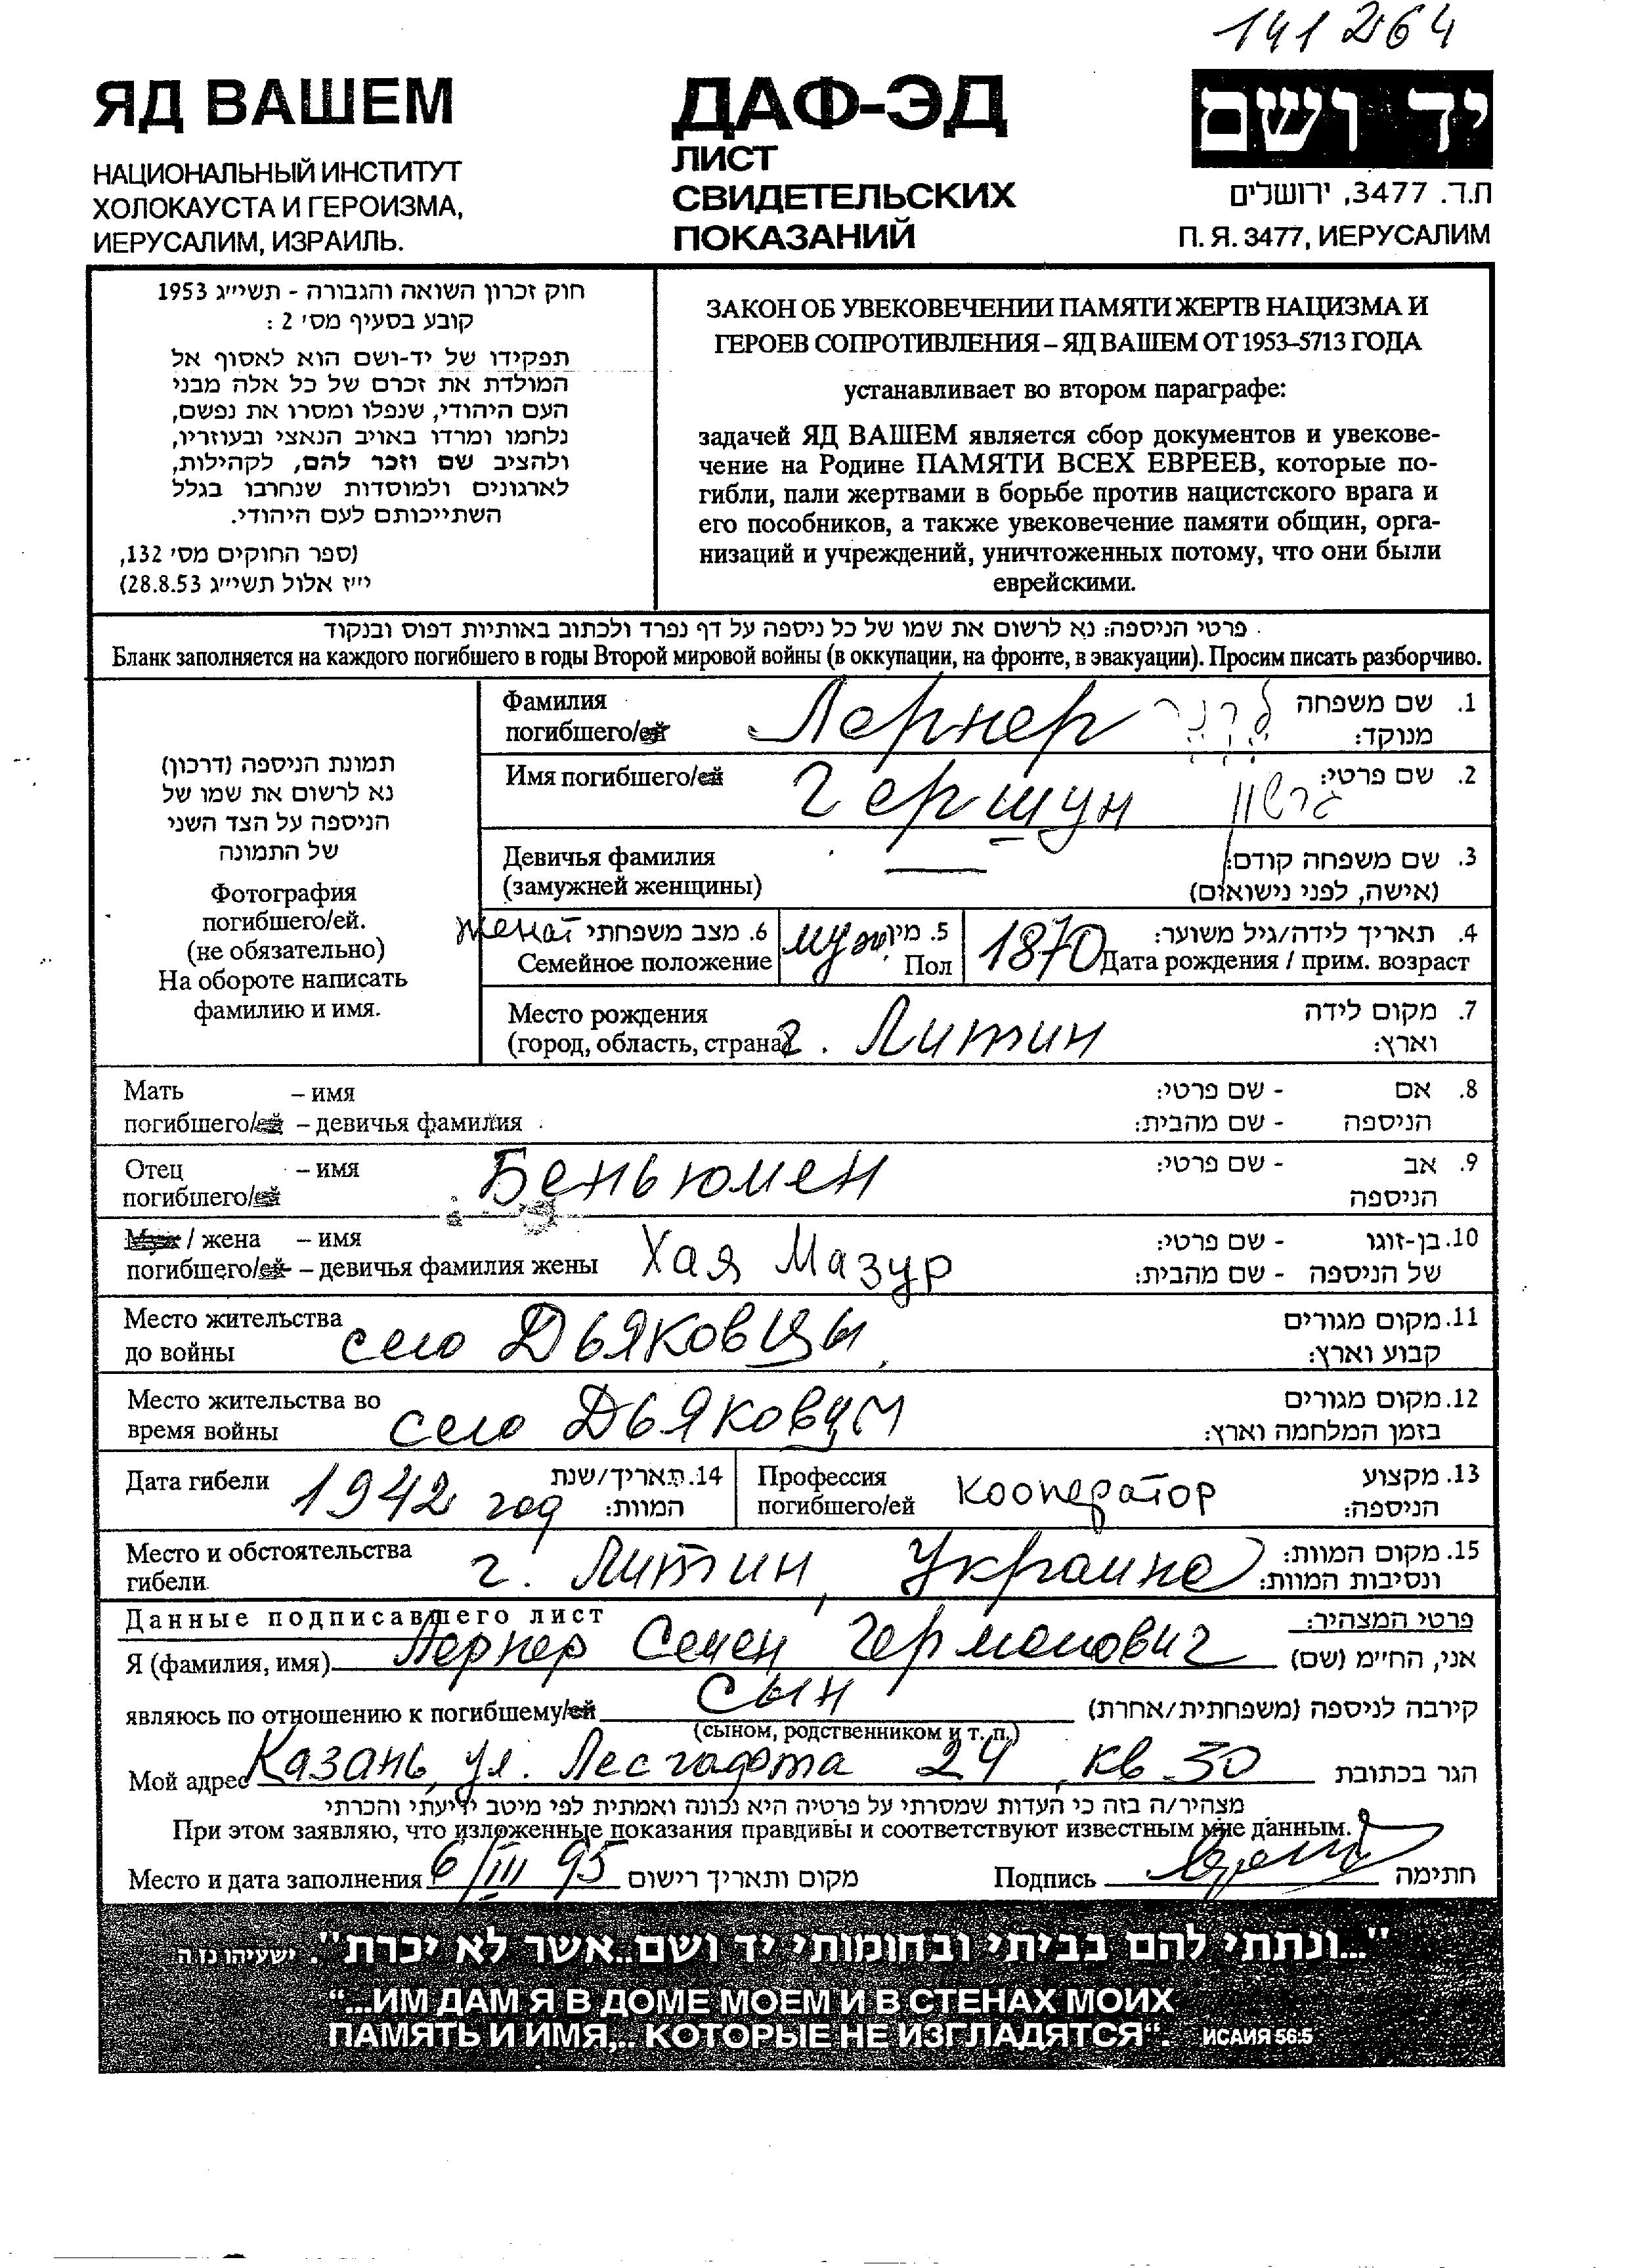 141264
ЯД ВАШЕМ
НАЦИОНАЛЬНЫЙ ИНСТИТУТ
ХОЛОКАУСТА И ГЕРОИЗМА,
ИЕРУСАЛИМ, ИЗРАИЛЬ.
ДАФ-ЭД
ЛИСТ
СВИДЕТЕЛЬСКИХ
ПОКАЗАНИЙ
יד ושם
ת.ד. 3477, ירושלים
П. Я. 3477, ИЕРУСАЛИМ
חוק זכרון השואה והגבורה - תשי״ג 1953
קובע בסעיף מס׳ 2 :
תפקידו של יד-ושם הוא לאסוף אל
המולדת את זכרם של כל אלה מבני
העם היהודי, שנפלו ומסרו את נפשם,
נלחמו ומרדו באויב הנאצי ובעוזריו,
ולהציב שם וזכר להם, לקהילות,
לארגונים ולמוסדות שנחרבו בגלל
השתייכותם לעם היהודי.
(ספר החוקים מס׳ 132,
י״ז אלול תשי״ג 28.8.53)
ЗАКОН ОБ УВЕКОВЕЧЕНИИ ПАМЯТИ ЖЕРТВ НАЦИЗМА И
ГЕРОЕВ СОПРОТИВЛЕНИЯ – ЯД ВАШЕМ ОТ 1953–5713 ГОДА
устанавливает во втором параграфе:
задачей ЯД ВАШЕМ является сбор документов и увекове-
чение на Родине ПАМЯТИ ВСЕХ ЕВРЕЕВ, которые по-
гибли, пали жертвами в борьбе против нацистского врага и
его пособников, а также увековечение памяти общин, орга-
низаций и учреждений, уничтоженных потому, что они были
еврейскими.
פרטי הניספה: נא לרשום את שמו של כל ניספה על דף נפרד ולכתוב באותיות דפוס ובנקוד
Бланк заполняется на каждого погибшего в годы Второй мировой войны (в оккупации, на фронте, в эвакуации). Просим писать разборчиво.
תמונת הניספה (דרכון)
נא לרשום את שמו של
הניספה על הצד השני
של התמונה
Фотография
погибшего/ей.
(не обязательно)
На обороте написать
фамилию и имя.
Фамилия Лернер לרנר 1. שם משפחה
погибшего/ей מנוקד:
Имя погибшего/ей Гершун גרשון 2. שם פרטי:
Девичья фамилия — 3. שם משפחה קודם:
(замужней женщины) (אישה, לפני נישואים)
женат 6. מצב משפחתי муж. 5. מין 1870 4. תאריך לידה/גיל משוער:
Семейное положение Пол Дата рождения / прим. возраст
Место рождения 7. מקום לידה
(город, область, страна) г. Литин וארץ:
Мать – имя 8. אם - שם פרטי:
погибшего/ей – девичья фамилия הניספה - שם מהבית:
Отец – имя Беньюмен 9. אב - שם פרטי:
погибшего/ей הניספה
Муж / жена – имя Хая Мазур 10. בן-זוגו - שם פרטי:
погибшего/ей – девичья фамилия жены של הניספה - שם מהבית:
Место жительства село Дьяковцы, 11. מקום מגורים
до войны קבוע וארץ:
Место жительства во село Дьяковцы 12. מקום מגורים
время войны בזמן המלחמה וארץ:
Дата гибели 1942 год 14. תאריך/שנת המוות:
Профессия кооператор 13. מקצוע
погибшего/ей הניספה:
Место и обстоятельства г. Литин, Украина 15. מקום המוות:
гибели ונסיבות המוות:
Данные подписавшего лист פרטי המצהיר:
Я (фамилия, имя) Лернер Семен Германович אני, החי״מ (שם)
являюсь по отношению к погибшему/ей сын קירבה לניספה (משפחתית/אחרת)
(сыном, родственником и т. п.)
Мой адрес Казань, ул. Лесгафта 24, кв 30 הגר בכתובת
מצהיר/ה בזה כי העדות שמסרתי על פרטיה היא נכונה ואמתית לפי מיטב ידיעתי והכרתי
При этом заявляю, что изложенные показания правдивы и соответствуют известным мне данным.
Место и дата заполнения 6/III 95 מקום ותאריך רישום Подпись חתימה
"...ונתתי להם בביתי ובחומותי יד ושם..אשר לא יכרת". ישעיהו נו ה
“...ИМ ДАМ Я В ДОМЕ МОЕМ И В СТЕНАХ МОИХ
ПАМЯТЬ И ИМЯ,.. КОТОРЫЕ НЕ ИЗГЛАДЯТСЯ“. ИСАИЯ 56:5